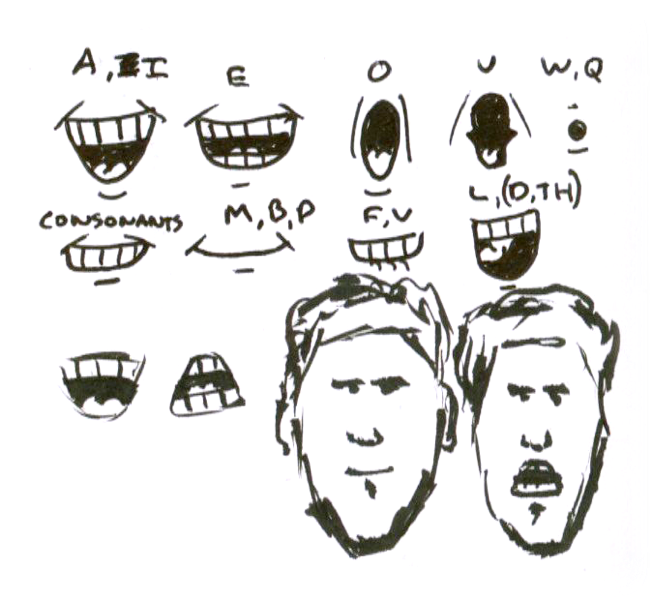 A, I E O U W,Q
CONSONANTS M,B,P F,V L,(D,TH)